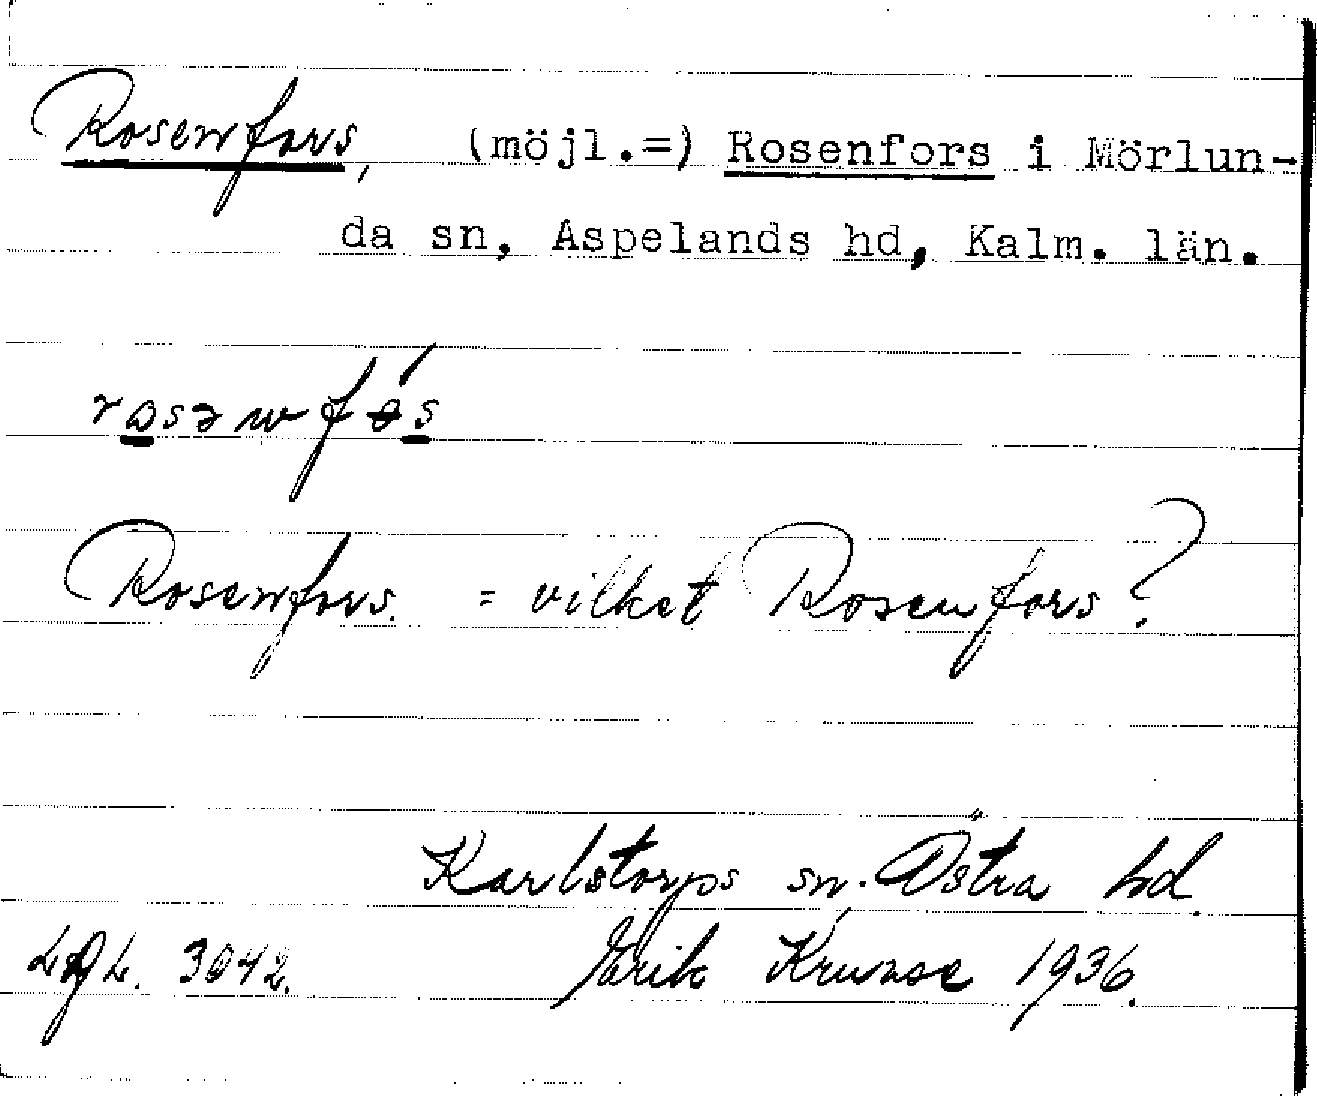 Rosenfors, (möjl.=) Rosenfors i Mörlun-
da sn, Aspelands hd, Kalm. län.
Rosenfors. = vilket Rosenfors?
Karlstorps sn. Östra hd.
3042. Erik Krunse 1936.